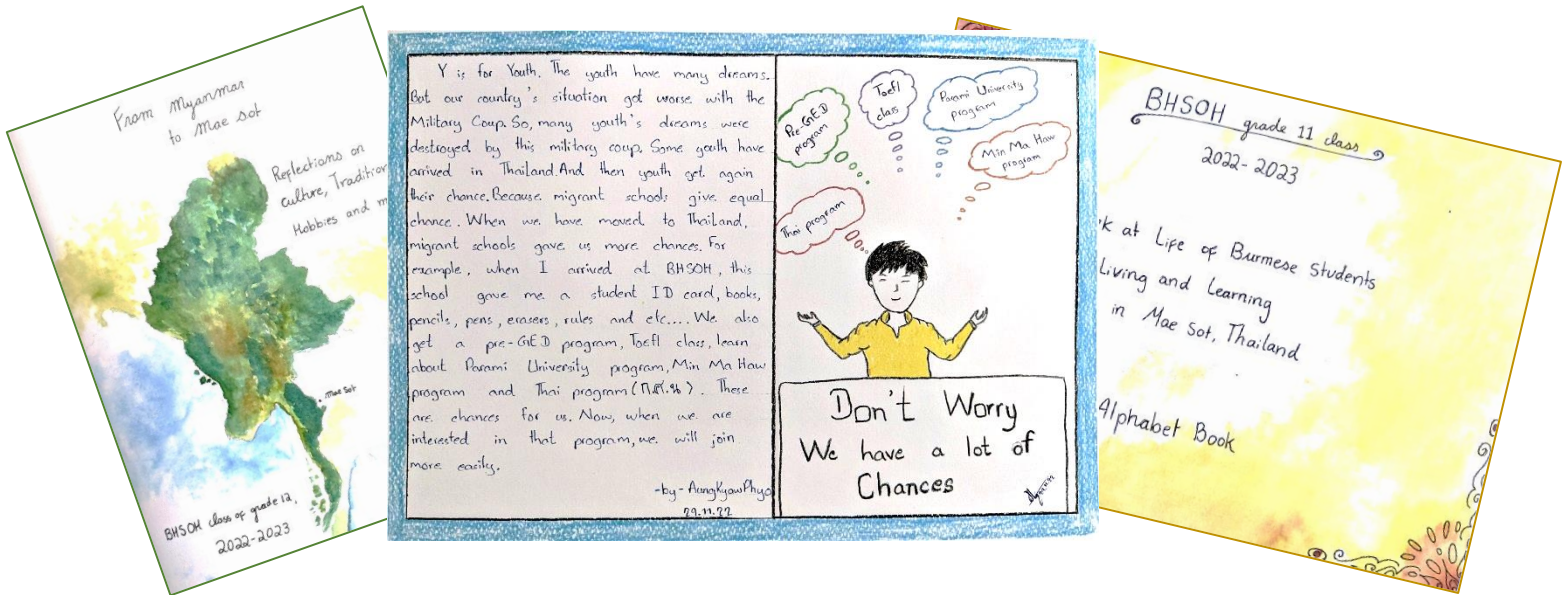 From Myanmar
to Mae Sot
Reflections on
culture, Tradition
Hobbies and m
Mae Sot
BHSOH class of grade 12,
2022-2023
Y is for Youth. The youth have many dreams.
But our country's situation got worse with the
Military Coup. So, many youth's dreams were
destroyed by this military coup. Some youth have
arrived in Thailand. And then youth get again
their chance. Because migrant schools give equal
chance. When we have moved to Thailand,
migrant schools gave us more chances. For
example, when I arrived at BHSOH, this
school gave me a student ID card, books,
pencils, pens, erasers, rules and etc.... We also
get a pre-GED program, Toefl class, learn
about Parami University program, Min Ma Haw
program and Thai program (กศน.). These
are chances for us. Now, when we are
interested in that program, we will join
more easily.
-by- AungKyawPhyo
29.11.22
Pre-GED
program
Toefl
class
Parami University
program
Min Ma Haw
program
Thai program
Don't Worry
We have a lot of
Chances
BHSOH grade 11 class
2022-2023
k at Life of Burmese Students
Living and Learning
in Mae Sot, Thailand
Alphabet Book